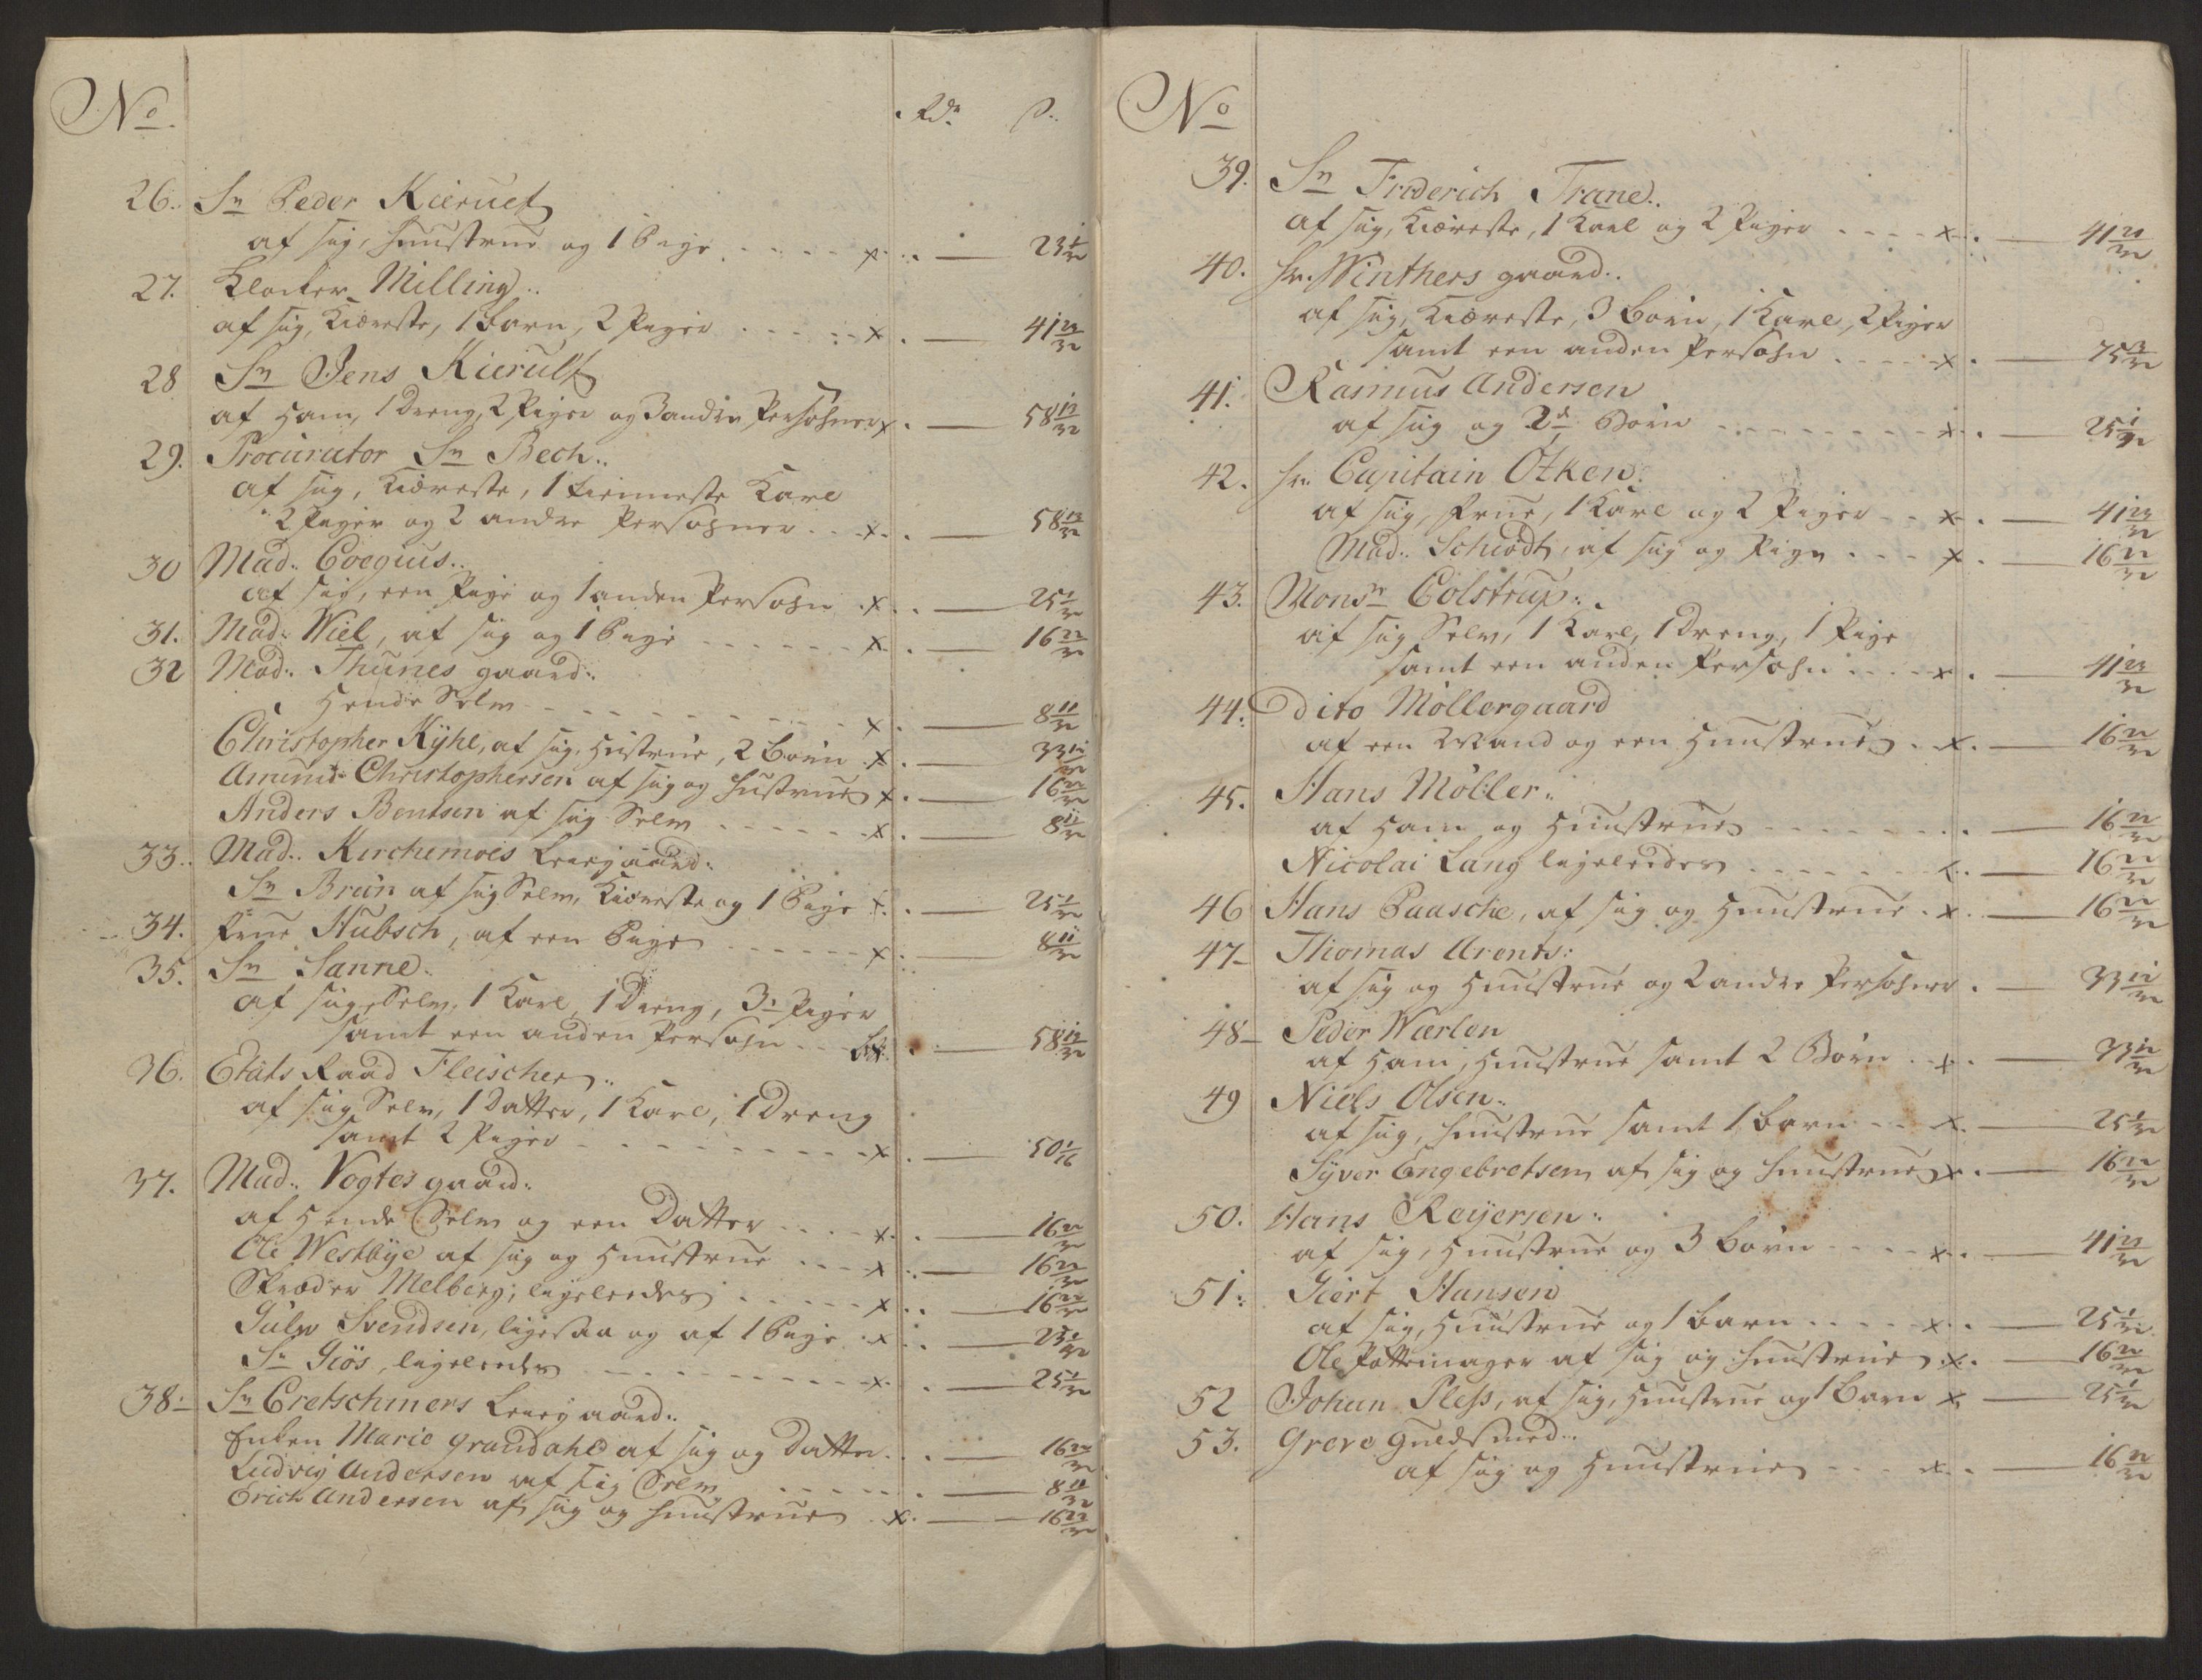 No. Rdr ß.
26. Sr Peder Kierulf
af sig, Huustrue og 1 Pige - - - - x. — 25 1/32
27. Klocker Milling..
af sig, Kiæreste, 1 barn, 2 Piger - - - - x. — 41 23/32
28 Sr Jens Kierulf
af ham, 1 dreng, 2 Piger og 3 andre Persohner x. — 58 13/32
29. Procurator Sr Bech..
af sig, Kiæreste, 1 tienneste Karl
2 Piger og 2 andre Persohner - - x. — 58 13/32
30 Mad: Coegius..
af sig, een Pige og 1 anden Persohn . x. — 25 1/32
31. Mad: Wiel, af sig og 1 Pige - - - - - x. — 16 22/32
32 Mad: Thunes gaard..
hende Selv - - - - - - - - - x. — 8 11/32
Christopher Kyhl, af sig, Hustrue, 2 børn . x. — 33 12/32
Amund Christophersen af sig og Hustrue x. — 16 22/32
Anders Bentsen af sig Selv - - - - - x. — 8 11/32
33. Mad: Kirchemoes Leuegaard:
Sr Brun af sig Selv, Kiæreste og 1 Pige x. — 25 1/32
34. Frue Hubsch, af een Pige - - - - - x. — 8 11/32
35. Sr Sanne..
af sig Selv, 1 Karl, 1 Dreng, 3 Piger
samt een anden Persohn - - x. — 58 13/32
36. Etats Raad Fleischer..
af sig Selv, 1 Datter, 1 Karl, 1 Dreng
samt 2 Piger - - - - - - - - - x. — 50 1/16
37. Mad: Vogtes gaard:
af hende Selv og een Datter - - - x. — 16 22/32
Ole Westbye af sig og Huustrue - - - x — 16 22/32
Skræder Melberg, ligeleedes - - - - - x. — 16 22/32
Gulv Svendsen, ligesaa og af 1 Pige . x. — 25 1/32
Sr Giös, ligeleedes - - - - - - - - x. — 25 1/32
38: Sr Cretschmers Leuegaard..
Enken Marie Grandahl af sig og Datter . — 16 22/32
Ludvig Andersen af sig Selv - - - - - — 8 11/32
Erich Andersen af sig og Huustrue . x. — 16 22/32
No
39. Sr Friderich Trane..
af sig, Kiæreste, 1 Karl og 2 Piger - - - - x. — 41 23/32
40. Hr. Winthers gaard..
af sig, Kiæreste, 3 børn, 1 Karl, 2 Piger
samt een anden Persohn - - - - x. — 75 3/32
41. Rasmus Andersen
af sig og 2de Børn - - - - - - - - x. — 25 1/32
42. Hr. Capitain Otken:
af sig, Frue, 1 Karl og 2 Piger - - x. — 41 23/32
Mad: Schiødt, af sig og Pige - - - x. — 16 22/32
43. Monsr Colstrup:.
af sig Selv, 1 Karl, 1 dreng, 1 Pige
samt een anden Persohn - - - - x. — 41 23/32
44. Dito Möllergaard
af een Mand og een Huustrue . x. — 16 22/32
45. Hans Möller:.
af ham og Huustrue - - - - - - - . — 16 22/32
Nicolai Lang ligeleedes - - - - - - x. — 16 22/32
46 Hans Paasche, af sig og Huustrue . x. — 16 22/32
47 - Thomas Arents:
af sig og Huustrue og 2 andre Persohner . — 33 12/32
48 - Peder Wærlen
af ham, Huustrue samt 2 Børn . x. — 33 12/32
49 Niels Olsen..
af sig, Huustrue samt 1 barn - - x. — 25 1/32
Syver Engebretsen af sig og Huustrue x. — 16 22/32
50. Hans Reyersen:.
af sig, Huustrue og 3 børn - - - - x. — 41 23/32
51:. Giert Hansen
af sig, Huustrue og 1 barn - - - - x. — 25 1/32
Ole Pottemager af sig og Huustrue . x. — 16 22/32
52 Johan Pless, af sig, Huustrue og 1 barn x. — 25 1/32
53. Greve Guldsmed..
af sig og Huustrue - - - x. — 16 22/32